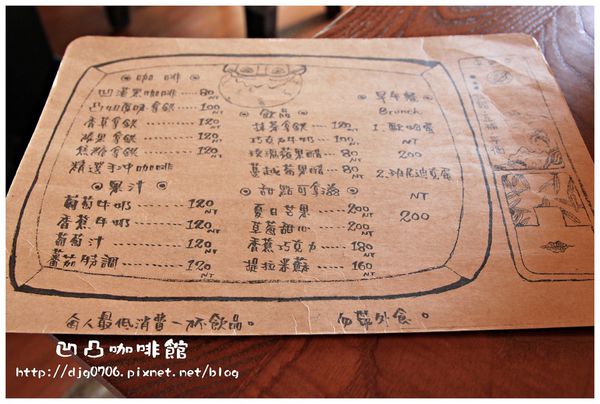 咖啡
凹濃果咖啡 ---- 80 NT
凸咖啡拿鐵 ---- 100 NT
香草拿鐵 ---- 120 NT
榛果拿鐵 ---- 120 NT
焦糖拿鐵 ---- 120 NT
精選手沖咖啡
果汁
葡萄牛奶 ---- 120 NT
香蕉牛奶 ---- 120 NT
葡萄汁 ---- 120 NT
蕃茄特調 ---- 120 NT
飲品
抹茶拿鐵 ---- 120 NT
巧克力牛奶 ---- 100 NT
玫瑰蘋果醋 ---- 80 NT
蔓越莓果醋 ---- 80 NT
甜點可拿滋
夏日芒果 ---- 200 NT
草莓甜心 ---- 200 NT
香蕉巧克力 ---- 180 NT
提拉米蘇 ---- 160 NT
早午餐
Brunch
1.
200
NT
2. 班尼迪克蛋
NT
200
每人最低消費一杯飲品。
勿帶外食。
凹凸咖啡館
http://djg0706.pixnet.net/blog